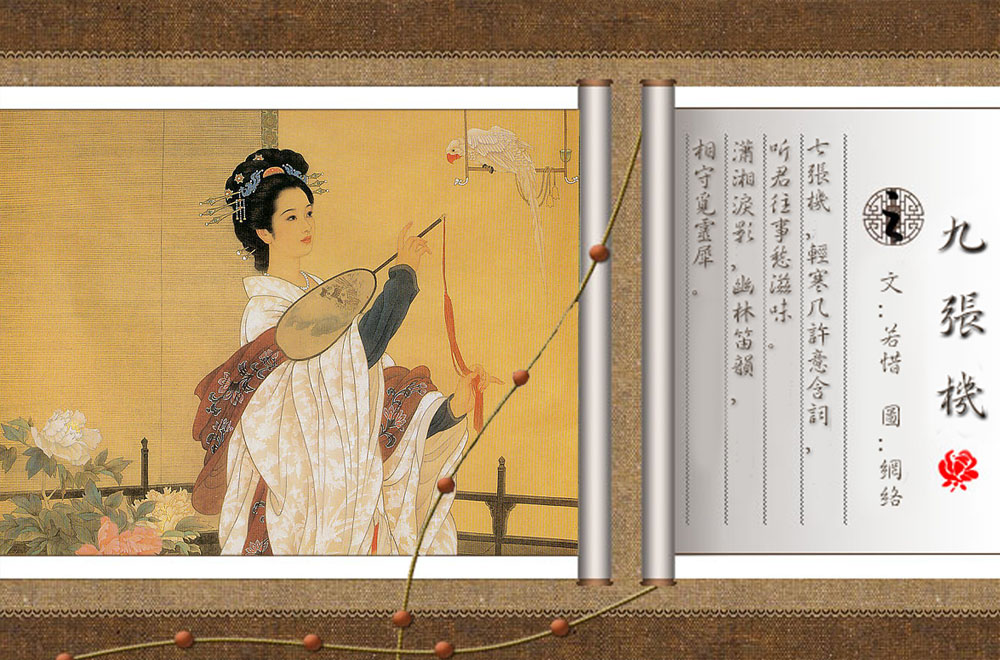 九張機
文：若惜 圖：網絡
七張機，輕寒几許意含詞，
听君往事愁滋味。
瀟湘淚影，幽林笛韻，
相守覓靈犀。